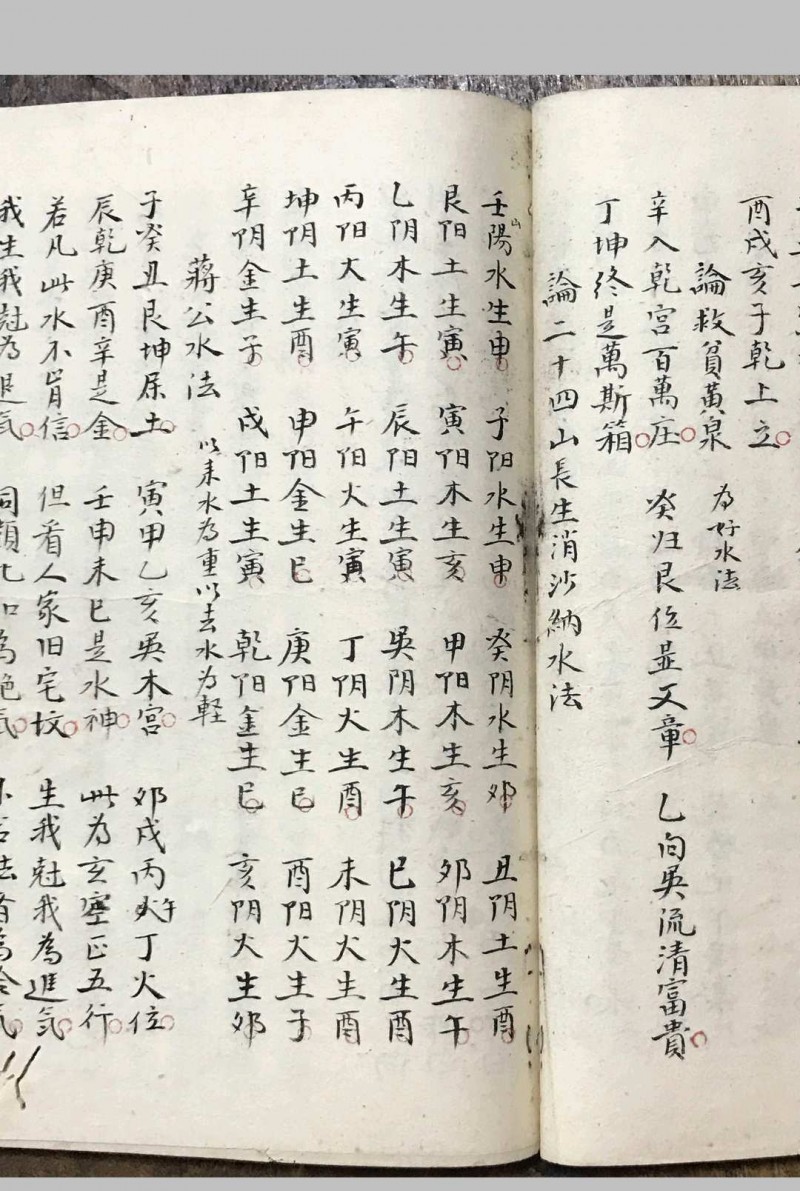 酉戌亥子乾上立
論救貧黃泉 为好水法
辛入乾宮百萬庄 癸归艮位㬎文章 乙向巽流清富貴
丁坤終是萬斯箱
論二十四山長生消沙納水法
壬山陽水生申 子阳水生申 癸阴水生卯 丑阴土生酉
艮阳土生寅 寅阳木生亥 甲阳木生亥 卯阴木生午
乙阴木生午 辰阳土生寅 巽阴木生午 巳阴火生酉
丙阳火生寅 午阳火生寅 丁阴火生酉 未阴火生酉
坤阴土生酉 申阳金生巳 庚阳金生巳 酉阳火生子
辛阴金生子 戌阳土生寅 乾阳金生巳 亥阴火生卯
蔣公水法 以来水为重以去水为軽
子癸丑艮坤屬土 寅甲乙亥巽木宮 卯戌丙午丁火位
辰乾庚酉辛是金 壬申未巳是水神 此为玄空正五行
若凡此水不肯信 但看人家旧宅坟 生我尅我為進気
我生我尅為退気